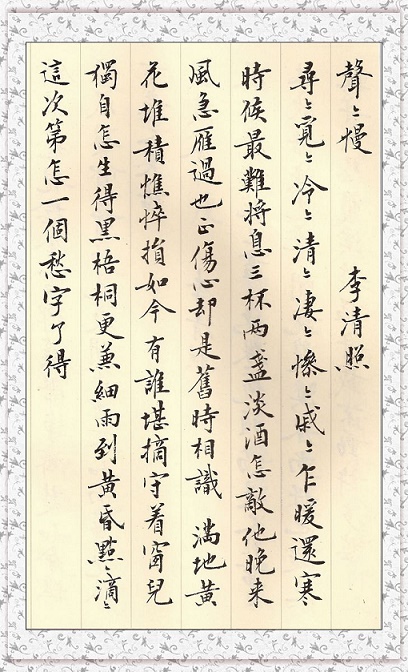 聲〻慢 李清照
尋〻覓〻冷〻清〻凄〻慘〻戚〻乍暖還寒
時候最難將息三杯兩盞淡酒怎敵他晚来
風急雁過也正傷心却是舊時相識滿地黃
花堆積憔悴損如今有誰堪摘守着窗兒
獨自怎生得黑梧桐更兼細雨到黃昏點〻滴〻
這次第怎一個愁字了得